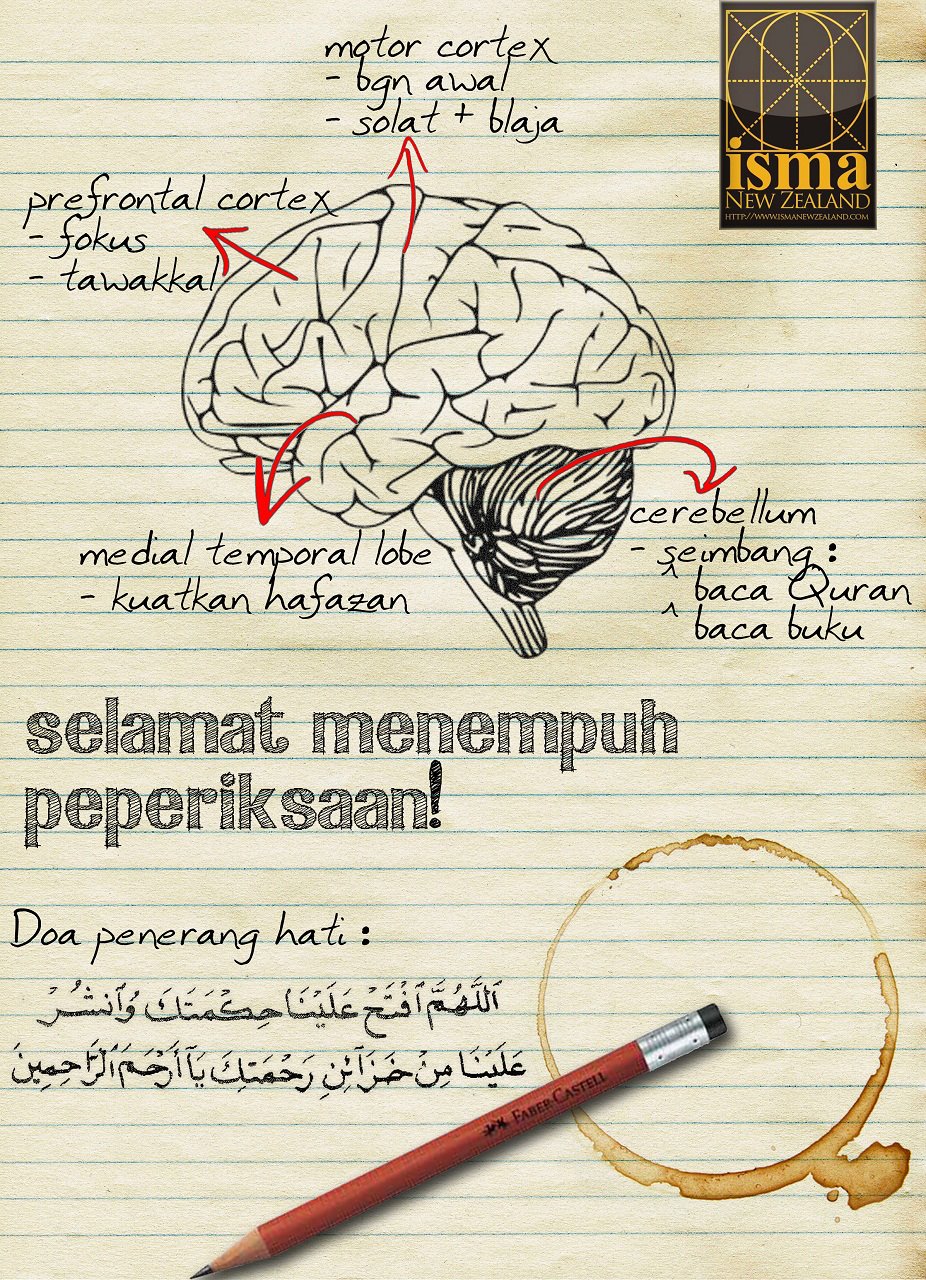 motor cortex
- bgn awal
- solat + blaja
isma
NEW ZEALAND
HTTP://WWW.ISMANEWZEALAND.COM
prefrontal cortex
- fokus
- tawakkal
medial temporal lobe
- kuatkan hafazan
cerebellum
- seimbang :
^ baca Quran
^ baca buku
selamat menempuh
peperiksaan!
Doa penerang hati :
اَللَّهُمَّ ٱفْتَحْ عَلَيْنَا حِكْمَتَكَ وَٱنْشُرْ
عَلَيْنَا مِنْ خَزَآئِنِ رَحْمَتِكَ يَآ أَرْحَمَ ٱلرَّاحِمِينَ
FABER-CASTELL